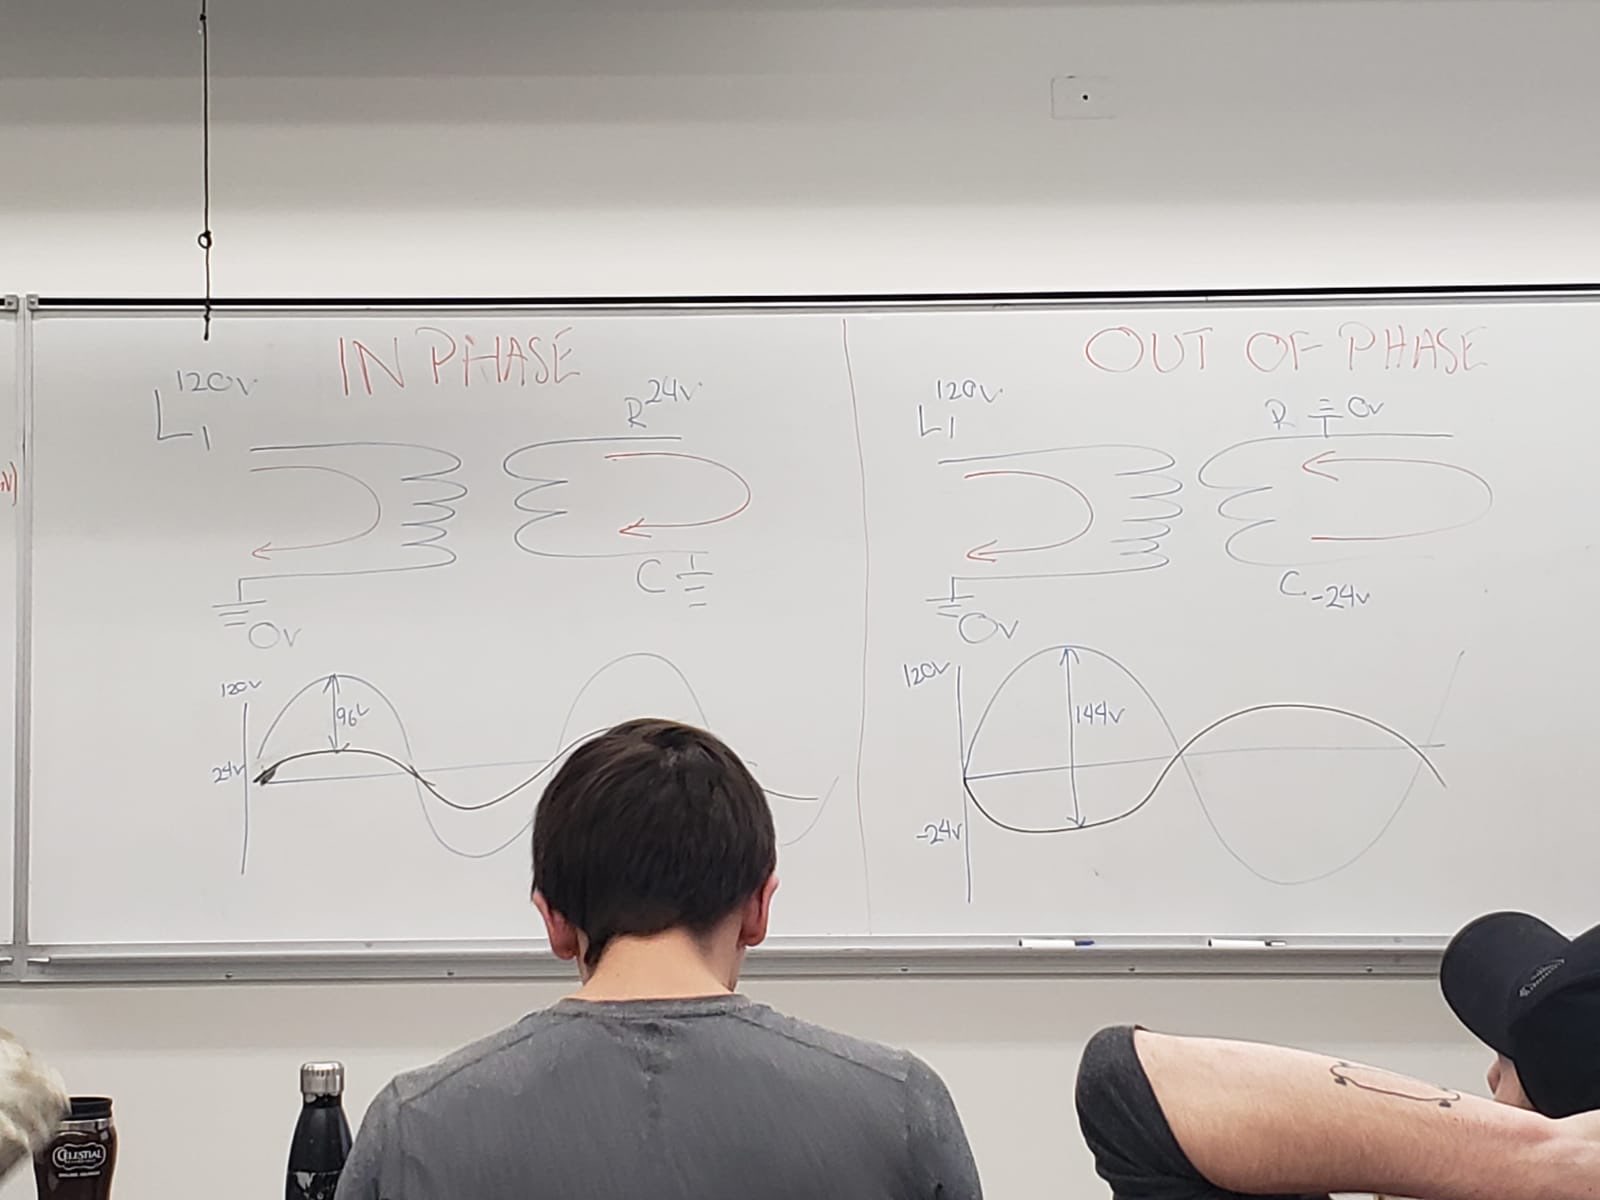 IN PHASE
120v
L1
24v
R
C
0v
120v
96v
24v
OUT OF PHASE
120v
L1
R 0v
C -24v
0v
120v
144v
-24v
CELESTIAL